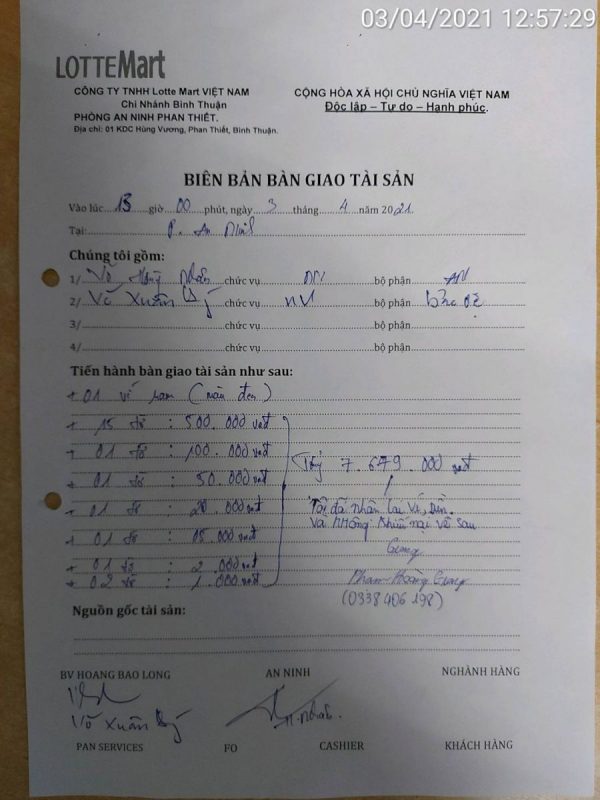 03/04/2021 12:57:29
LOTTEMart
CÔNG TY TNHH Lotte Mart VIỆT NAM
Chi Nhánh Bình Thuận
PHÒNG AN NINH PHAN THIẾT.
Địa chỉ: 01 KDC Hùng Vương, Phan Thiết, Bình Thuận.
CỘNG HÒA XÃ HỘI CHỦ NGHĨA VIỆT NAM
Độc lập – Tự do – Hạnh phúc.
BIÊN BẢN BÀN GIAO TÀI SẢN
Vào lúc 13 giờ 00 phút, ngày 3 tháng 4 năm 2021.
Tại: P. An Ninh
Chúng tôi gồm:
1/ Võ Hồng Nhân chức vụ NV bộ phận AN
2/ Võ Xuân Dỹ chức vụ NV bộ phận bảo vệ
3/ chức vụ bộ phận
4/ chức vụ bộ phận
Tiến hành bàn giao tài sản như sau:
+ 01 ví nam (màu đen)
+ 15 tờ : 500.000 vnđ
+ 01 tờ : 100.000 vnđ
+ 01 tờ : 50.000 vnđ
+ 01 tờ : 20.000 vnđ
+ 01 tờ : 05.000 vnđ
+ 01 tờ : 2.000 vnđ
+ 02 tờ : 1.000 vnđ
7.679.000 vnđ
Tôi đã nhận lại ví, tiền.
Và không khiếu nại về sau
Phan Hoàng Giang
(0338406198)
Nguồn gốc tài sản:
BV HOANG BAO LONG AN NINH NGHÀNH HÀNG
Võ Xuân Dỹ H. Nhân.
PAN SERVICES FO CASHIER KHÁCH HÀNG